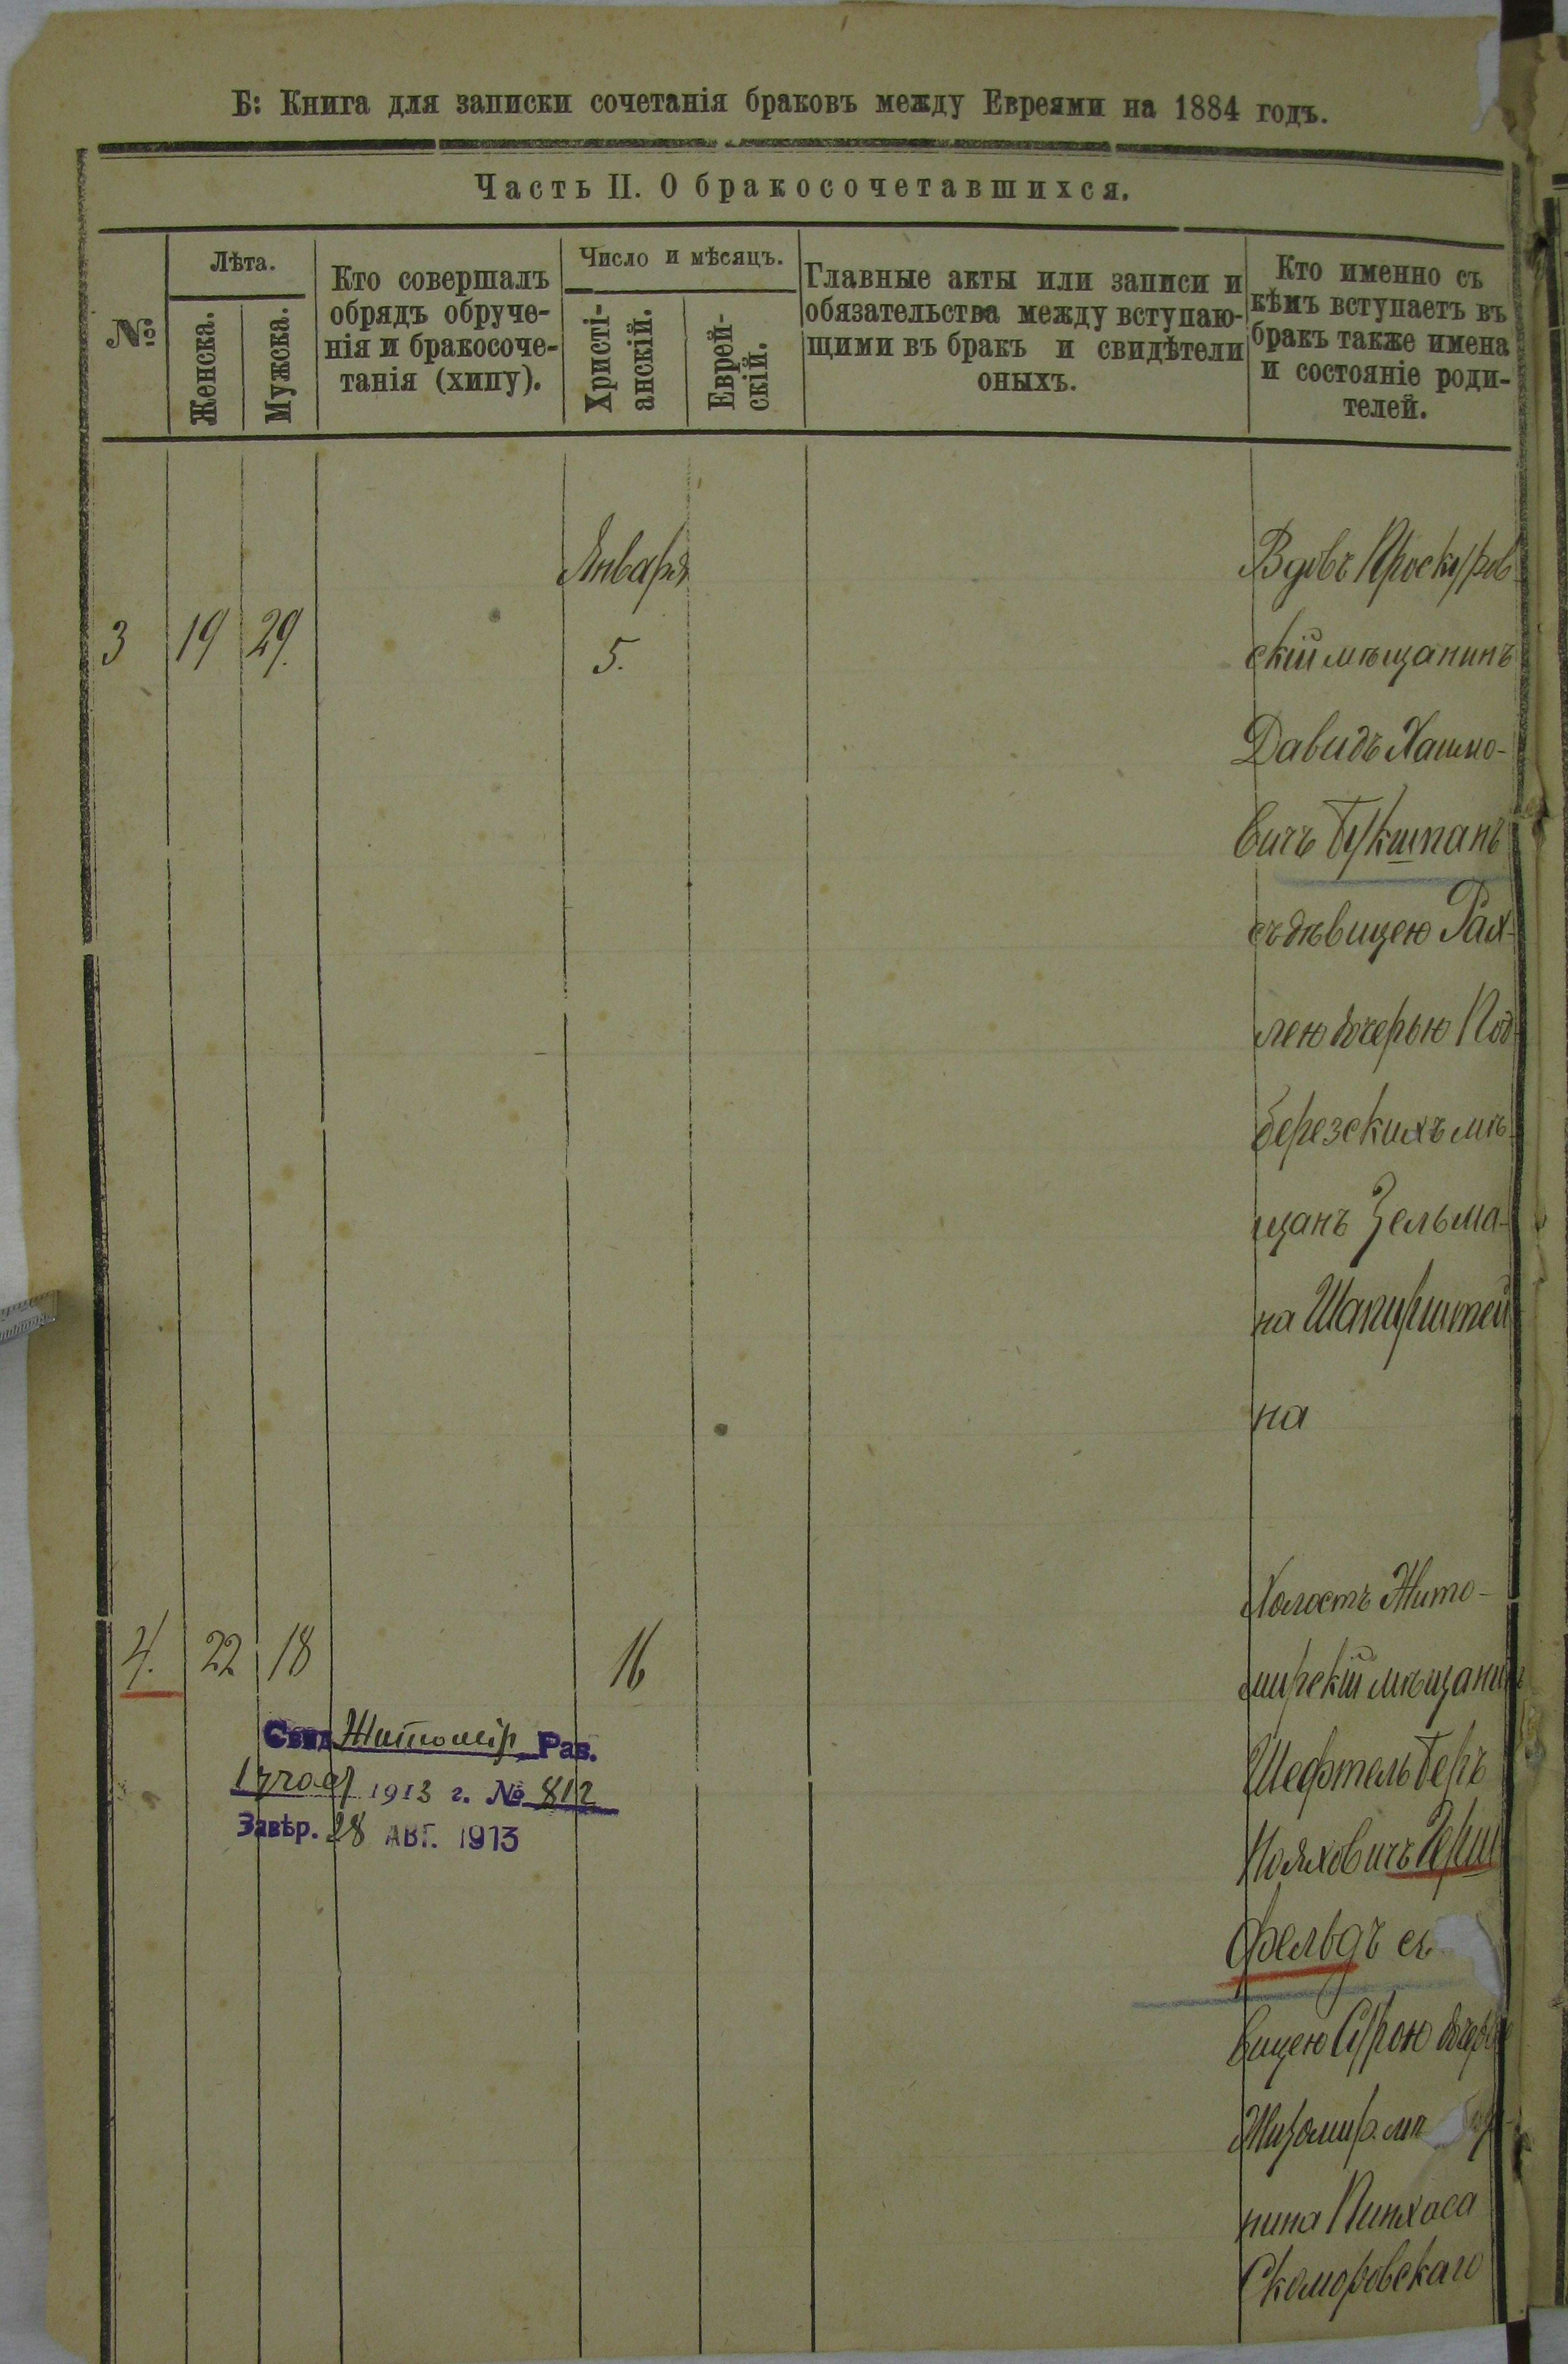 Б: Книга для записки сочетанія браковъ между Евреями на 1884 годъ.
Часть II. О бракосочетавшихся.
№
Лѣта.
Женска.
Мужска.
Кто совершалъ
обрядъ обруче-
нія и бракосоче-
танія (хипу).
Число и мѣсяцъ.
Христі-
анскій.
Еврей-
скій.
Главные акты или записи и
обязательства между вступаю-
щими въ бракъ и свидѣтели
оныхъ.
Кто именно съ
кѣмъ вступаетъ въ
бракъ также имена
и состояніе роди-
телей.
Января
3 19 29. 5.
Вдовъ Проскуров-
скій мѣщанинъ
Давидъ Хаимо-
вичъ Букшпанъ
съ дѣвицею Рах-
лею дочерью Под-
березскихъ мѣ-
щанъ Зельма-
на Шапирштей
на
4. 22 18 16
Холостъ Жито-
мирскій мѣщанинъ
Шефтель Беръ
Нояховичъ Герш
фельдъ съ
вицею Сурою дочерью
Житомир. мѣ
нина Пинхаса
Скоморовскаго
Свид Житомір. Рав.
1913 г. № 812
Завѣр. 28 АВГ. 1913